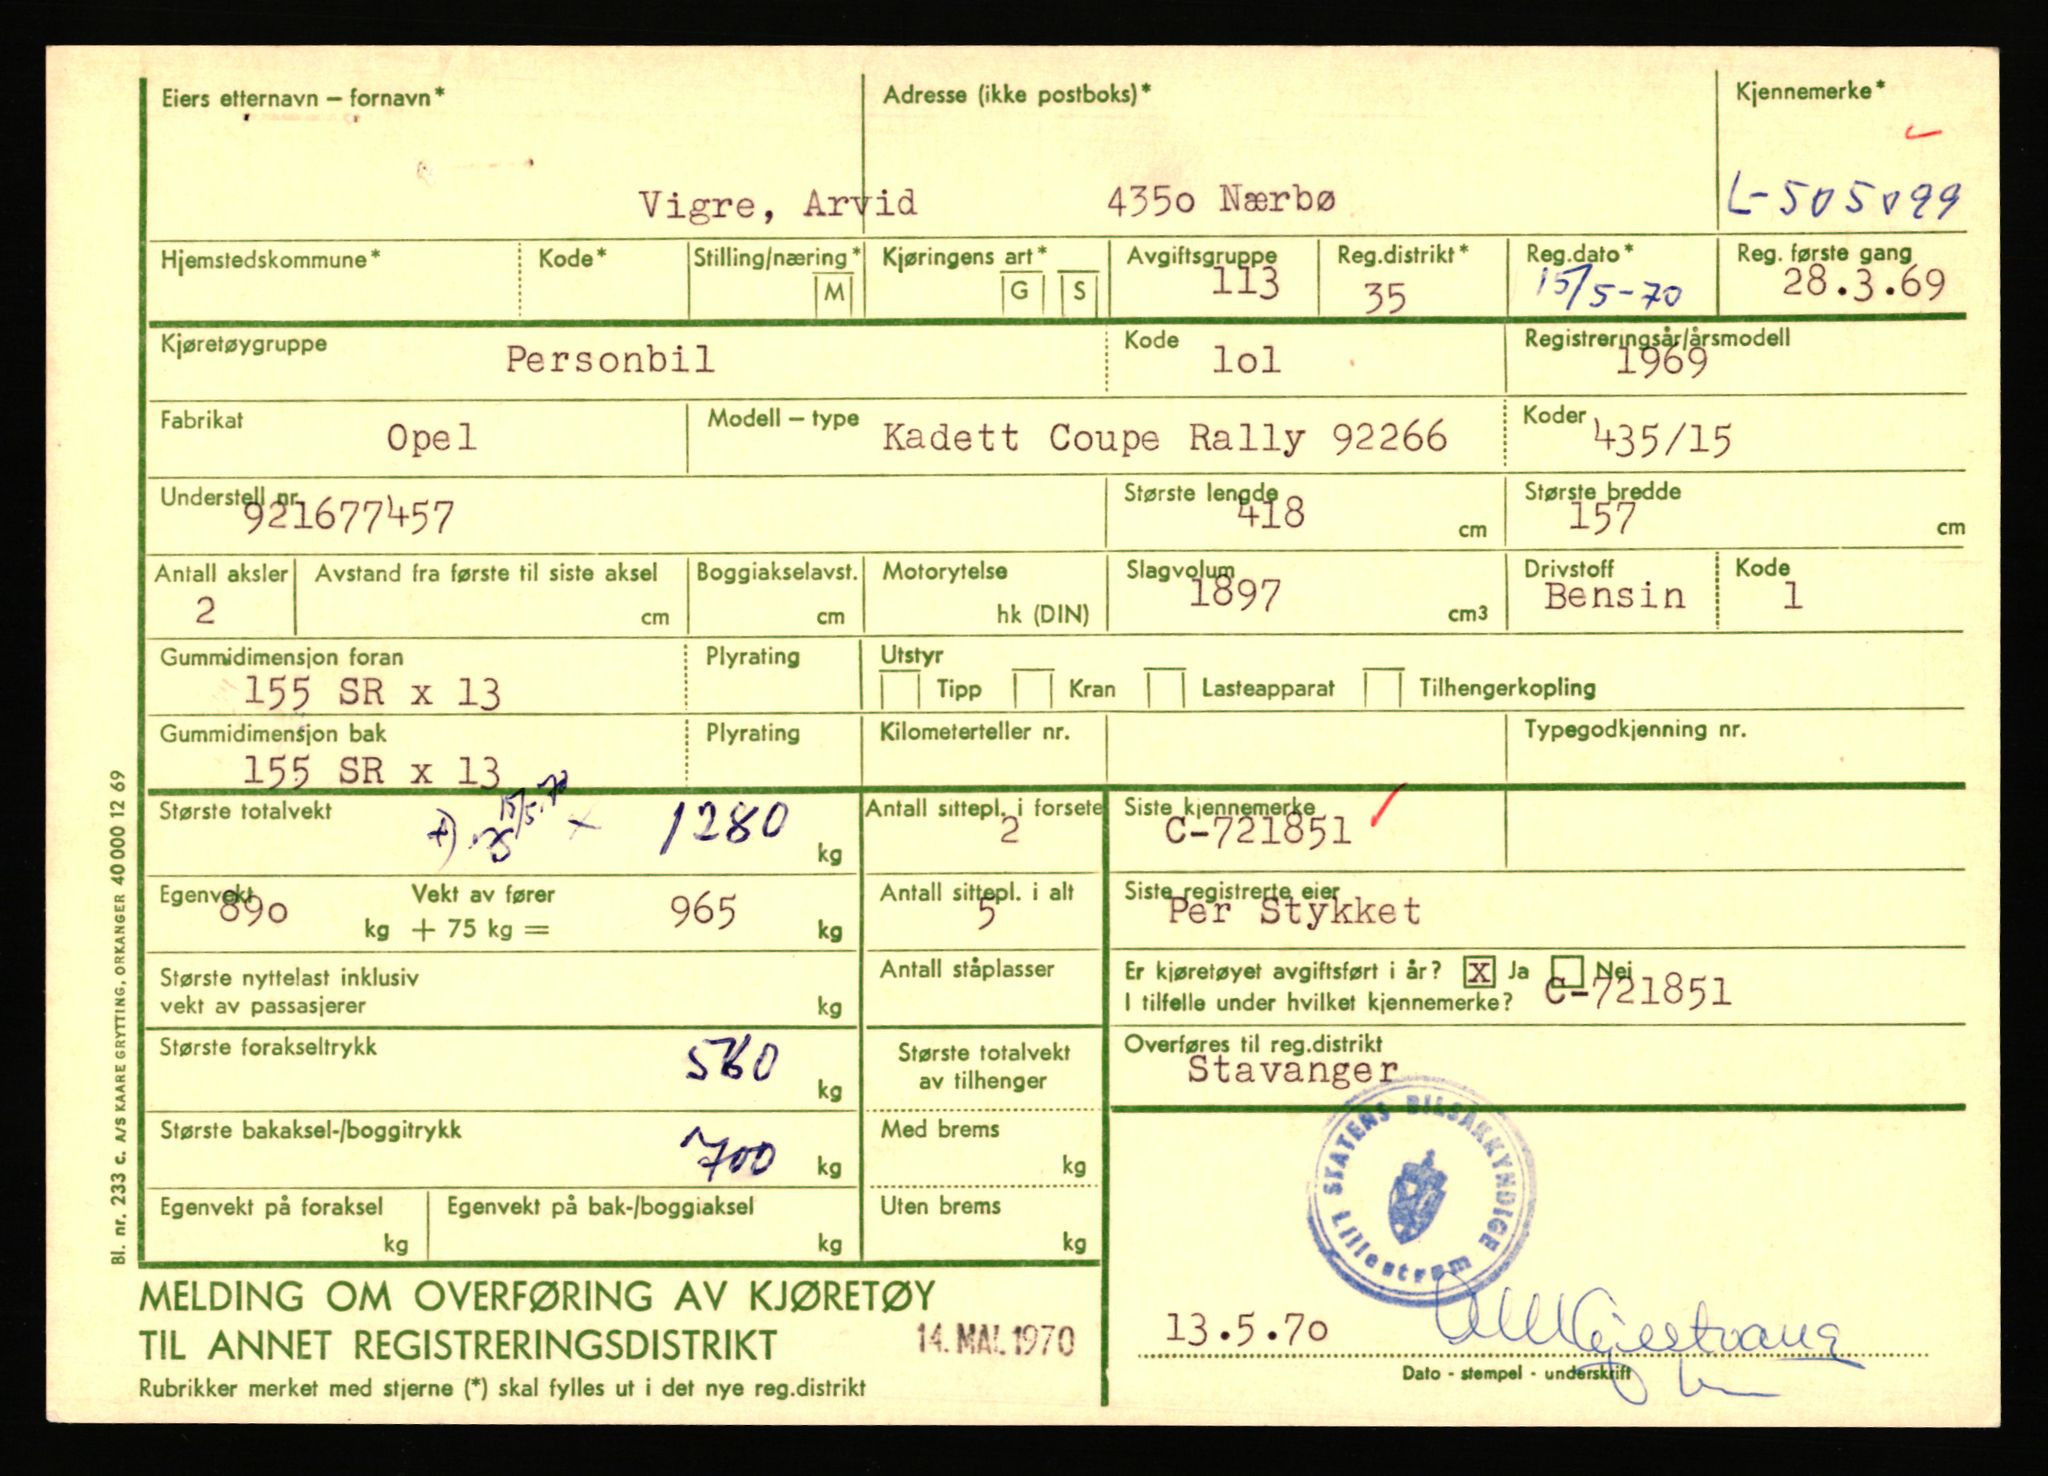 Eiers etternavn – fornavn*
Adresse (ikke postboks)*
Kjennemerke*
Vigre, Arvid
435o Nærbø
L-505099
Hjemstedskommune*
Kode*
Stilling/næring*
M
Kjøringens art*
G
S
Avgiftsgruppe
113
Reg.distrikt*
35
Reg.dato*
15/5-70
Reg. første gang
28.3.69
Kjøretøygruppe
Personbil
Kode
lol
Registreringsår/årsmodell
1969
Fabrikat
Opel
Modell – type
Kadett Coupe Rally 92266
Koder
435/15
Understell nr.
921677457
Største lengde
418
cm
Største bredde
157
cm
Antall aksler
2
Avstand fra første til siste aksel
cm
Boggiakselavst.
cm
Motorytelse
hk (DIN)
Slagvolum
1897
cm3
Drivstoff
Bensin
Kode
1
Gummidimensjon foran
155 SR x 13
Plyrating
Utstyr
Tipp
Kran
Lasteapparat
Tilhengerkopling
Gummidimensjon bak
155 SR x 13
Plyrating
Kilometerteller nr.
Typegodkjenning nr.
Største totalvekt
15/5.70
x
1280
kg
Antall sittepl. i forsete
2
Siste kjennemerke
C-721851
Egenvekt
89o
kg
Vekt av fører
+ 75 kg =
965
kg
Antall sittepl. i alt
5
Siste registrerte eier
Per Stykket
Største nyttelast inklusiv
vekt av passasjerer
kg
Antall ståplasser
Er kjøretøyet avgiftsført i år?
X
Ja
Nei
I tilfelle under hvilket kjennemerke?
C-721851
Største forakseltrykk
kg
Største totalvekt
av tilhenger
Overføres til reg.distrikt
Stavanger
Største bakaksel-/boggitrykk
700
kg
Med brems
kg
Egenvekt på foraksel
kg
Egenvekt på bak-/boggiaksel
kg
Uten brems
kg
STATENS BILSAKKYNDIGE
Lillestrøm
MELDING OM OVERFØRING AV KJØRETØY
TIL ANNET REGISTRERINGSDISTRIKT
14. MAI. 1970
13.5.7o
Dato - stempel - underskrift
Rubrikker merket med stjerne (*) skal fylles ut i det nye reg.distrikt
Bl. nr. 233 c. A/S KAARE GRYTTING, ORKANGER 40 000 12 69